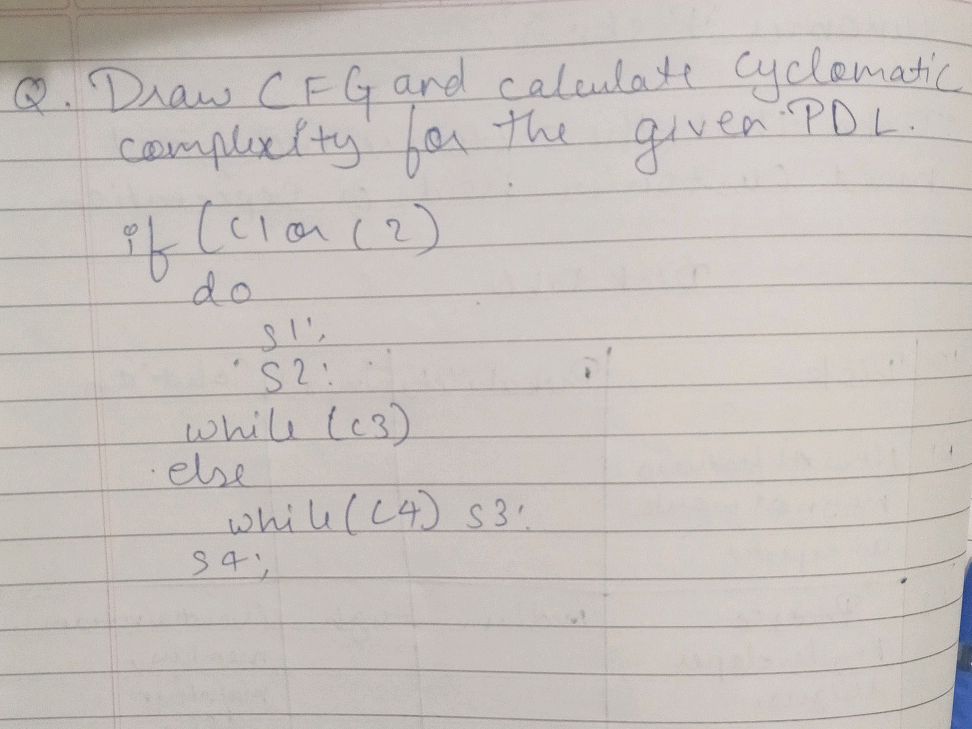 Q. Draw CFG and calculate cyclomatic
complexity for the given PDL.
if (C1 or C2)
do
S1;
S2;
while (C3)
else
while (C4) S3;
S4;